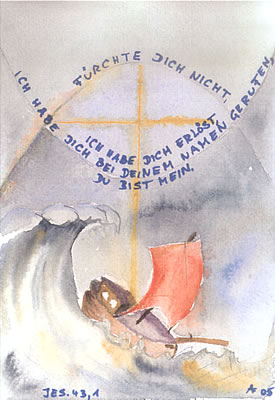 FÜRCHTE DICH NICHT,
ICH HABE DICH ERLÖST,
ICH HABE DICH BEI DEINEM NAMEN GERUFEN,
DU BIST MEIN.
JES. 43,1
05